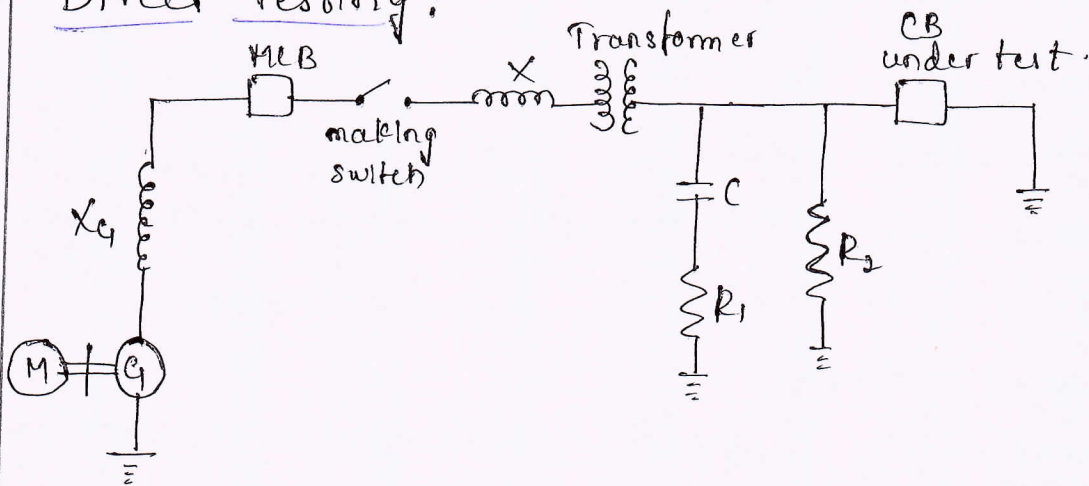 Direct Testing.
MCB
making
switch
X
Transformer
CB
under test.
XG
C
R1
R2
M
G